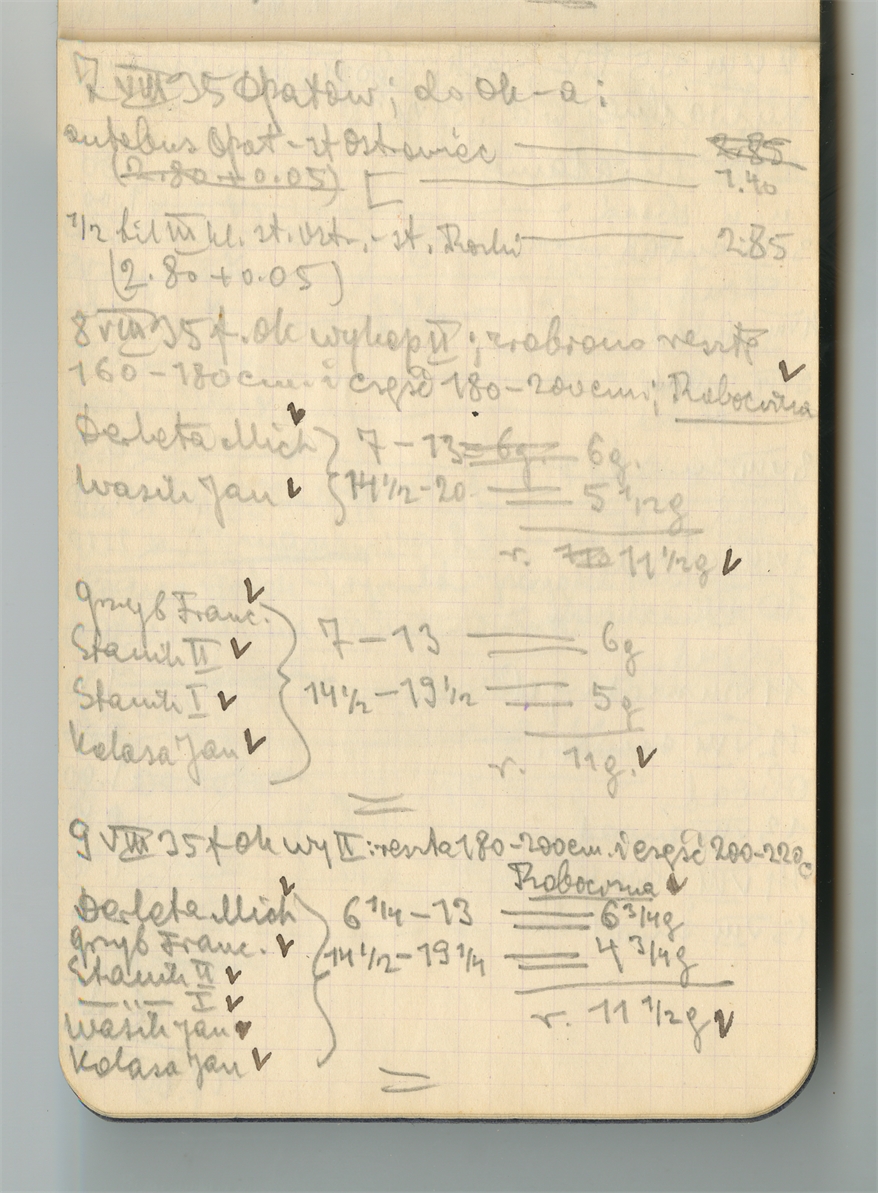 7 VIII 35 Opatów; do Ok-a:
autobus Opat-st Ostrowiec 2.85
(2.80 + 0.05) [ 1.40
1/2 bil III kl. st. Ostr.-st. 2.85
(2.80 + 0.05)
8 VIII 35 f. Ok wykop II; zrobiono resztę
160-180 cm. i część 180-200 cm; Robocizna
Derleta Mich } 7-13 = 6g. 6g.
Wasik Jan 14 1/2-20 = 5 1/2 g
r. 11 1/2 g
Grzyb Franc.
Stanik II } 7-13 = 6g
Stanik I 14 1/2-19 1/2 = 5g
Kolasa Jan r. 11g.
=
9 VIII 35 f Ok wy II: reszta 180-200 cm. i część 200-220 c
Robocizna
Derleta Mich } 6 1/4-13 = 6 3/4 g
Grzyb Franc. 14 1/2-19 1/4 = 4 3/4 g
Stanik II
—"— I r. 11 1/2 g
Wasik Jan
Kolasa Jan
=